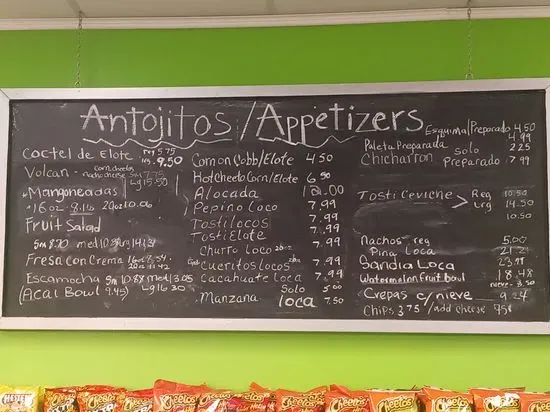 Antojitos/Appetizers
Coctel de Elote reg 5.75
9.50
Volcan - corn cheetos
nacho cheese
Lg 15.50
Mangoneadas
16oz 8.16 20oz 10.06
Fruit Salad
Sm 8.70 med 10.39 Lrg 14.12
Fresa con Crema 16oz 8.54
20oz 11.42
Escamocha Sm 10.88 med 13.05
(Acai Bowl 9.45) Lg 16.30
Corn on Cobb/Elote 4.50
Hot Cheeto Corn/Elote 6.50
Alocada 12.00
Pepino Loco 7.99
Tostilocos 7.99
Tosti Elote 7.99
Churro Loco 20oz 7.99
Cueritos Locos 7.99
Cacahuate Loco 7.99
Solo 5.00
Manzana Loca 7.50
Esquimal Preparado 4.50
4.99
Paleta Preparada Solo 2.25
Chicharron Preparado 7.99
Tosti Ceviche > Reg 10.50
Lrg 14.50
10.50
Nachos reg 5.00
Pina Loca
Sandia Loca 23.99
Watermelon Fruit Bowl 18.48
nieve - 3.50
Crepas c/nieve 9.24
Chips 3.75 / add cheese .95¢
CHESTER
Cheetos
Cheetos
Cheetos
Cheetos
Cheetos
Cheetos
Cheetos
Cheetos
Cheetos